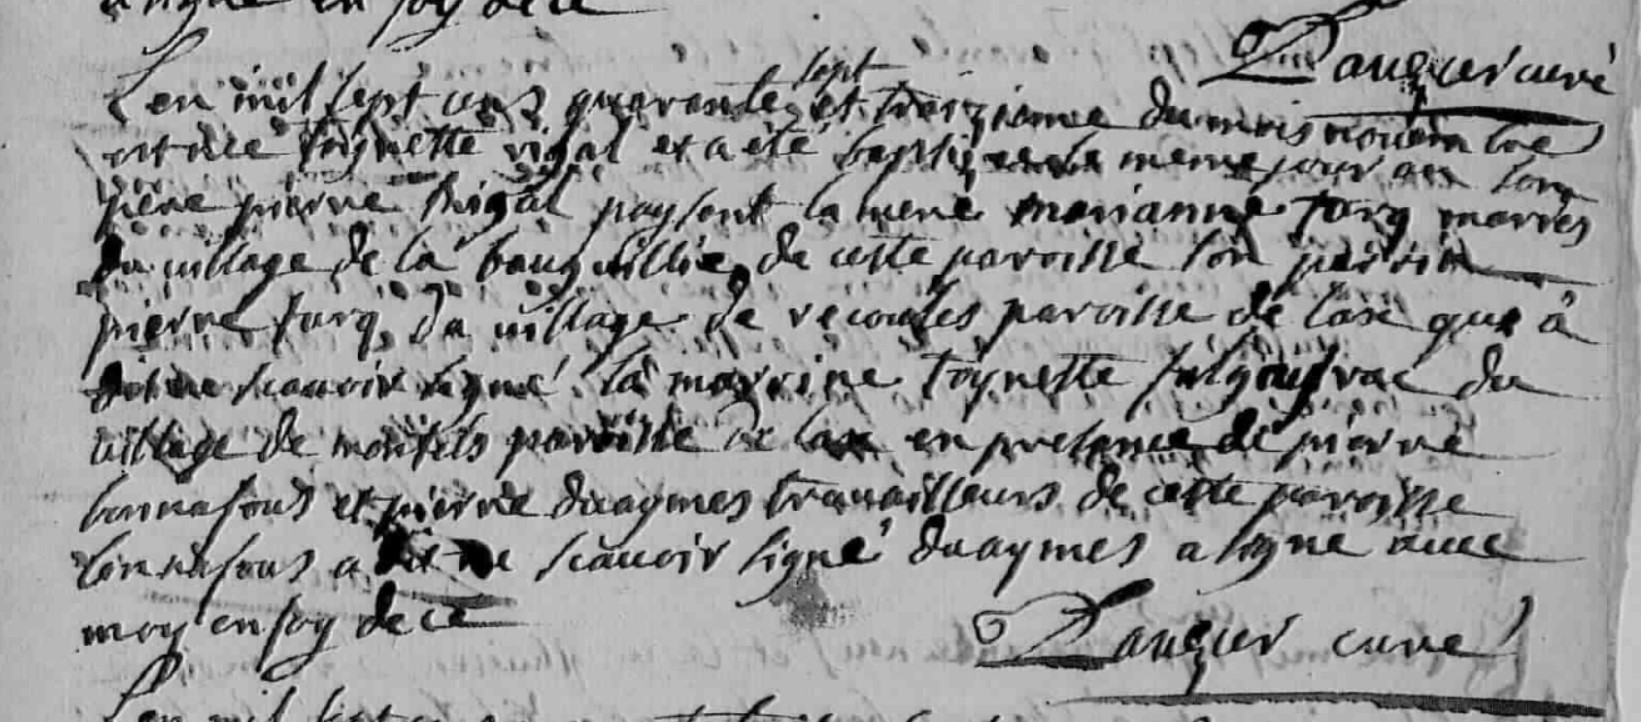 a signé en foy de ce
Dauzier curé
sept
Len mil sept cens quarante et treizieme du mois novembre
est née toynette rigal et a été baptizee le meme jour son
pere pierre rigal paysent la mere marianne farg marriés
du village de la de cette paroisse son parrin
pierre farg du village de recoules paroisse de que a
dit ne scauoir signé la marrine toynette du
village de montels paroisse de en presence de pierre
bonnafous et pierre duaymes trauailleurs de cette paroisse
bonnafous a dit ne scauoir signé duaymes a signe auec
moy en foy de ce
Dauzier curé
Len mil sept